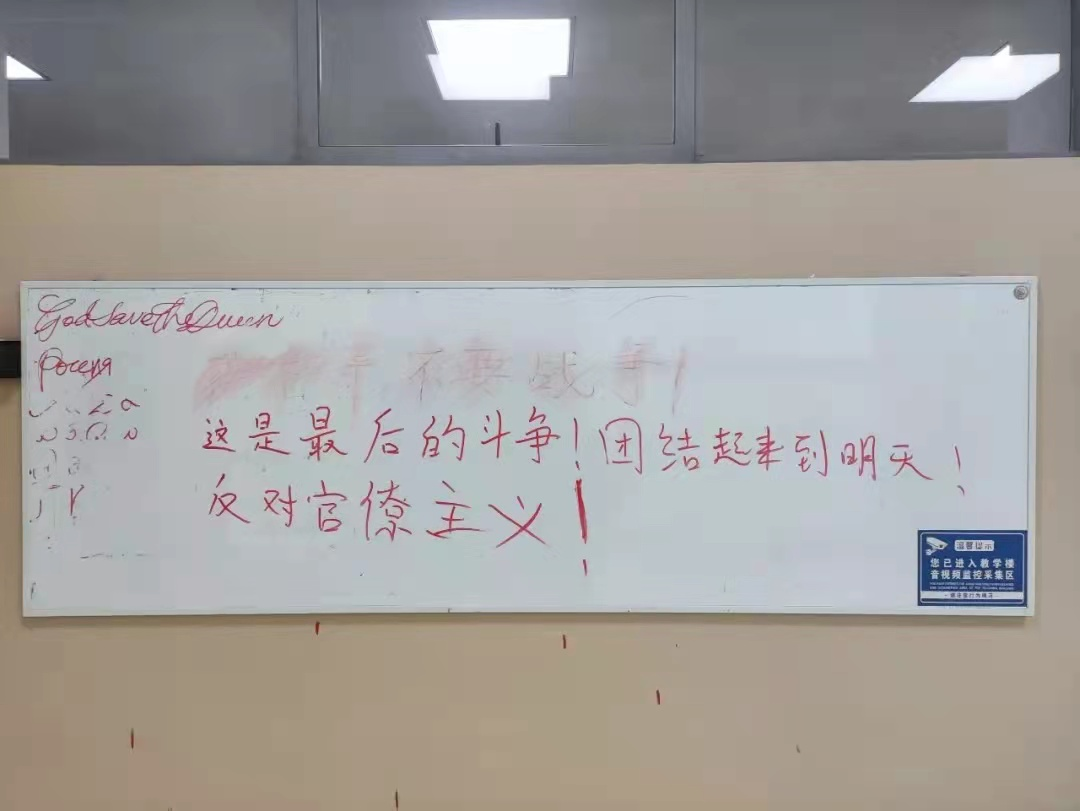 God Save The Queen
Россия
不要战争!
这是最后的斗争!团结起来到明天!
反对官僚主义!
温馨提示
您已进入教学楼
音视频监控采集区